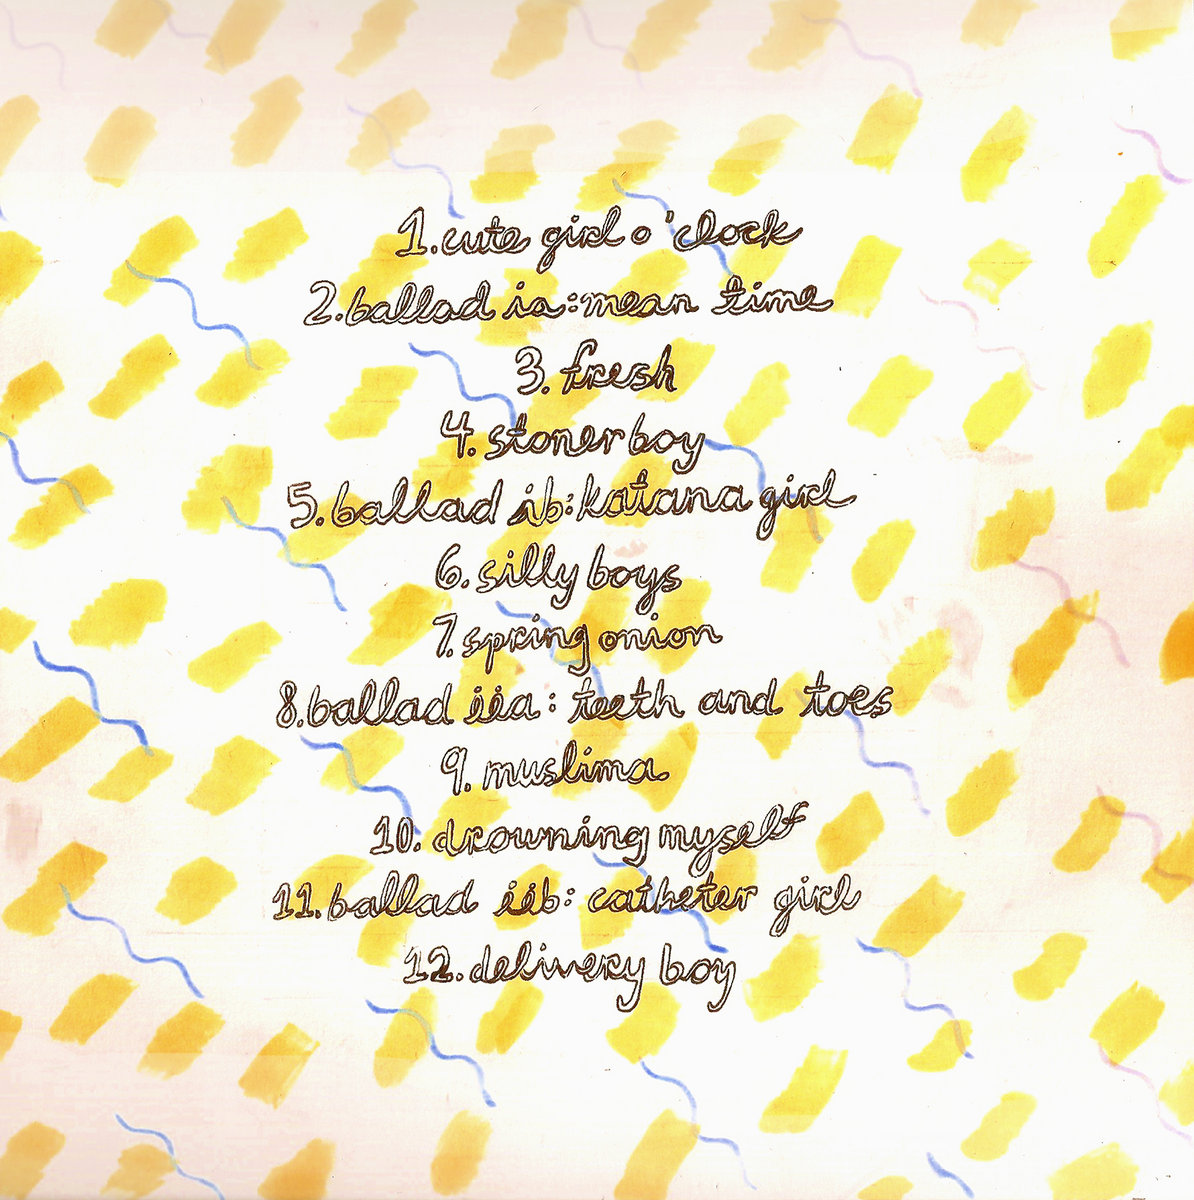 1. cute girl o'clock
2. ballad ia: mean time
3. fresh
4. stoner boy
5. ballad ib: katana girl
6. silly boys
7. spring onion
8. ballad iia: teeth and toes
9. muslima
10. drowning myself
11. ballad iib: catheter girl
12. delivery boy